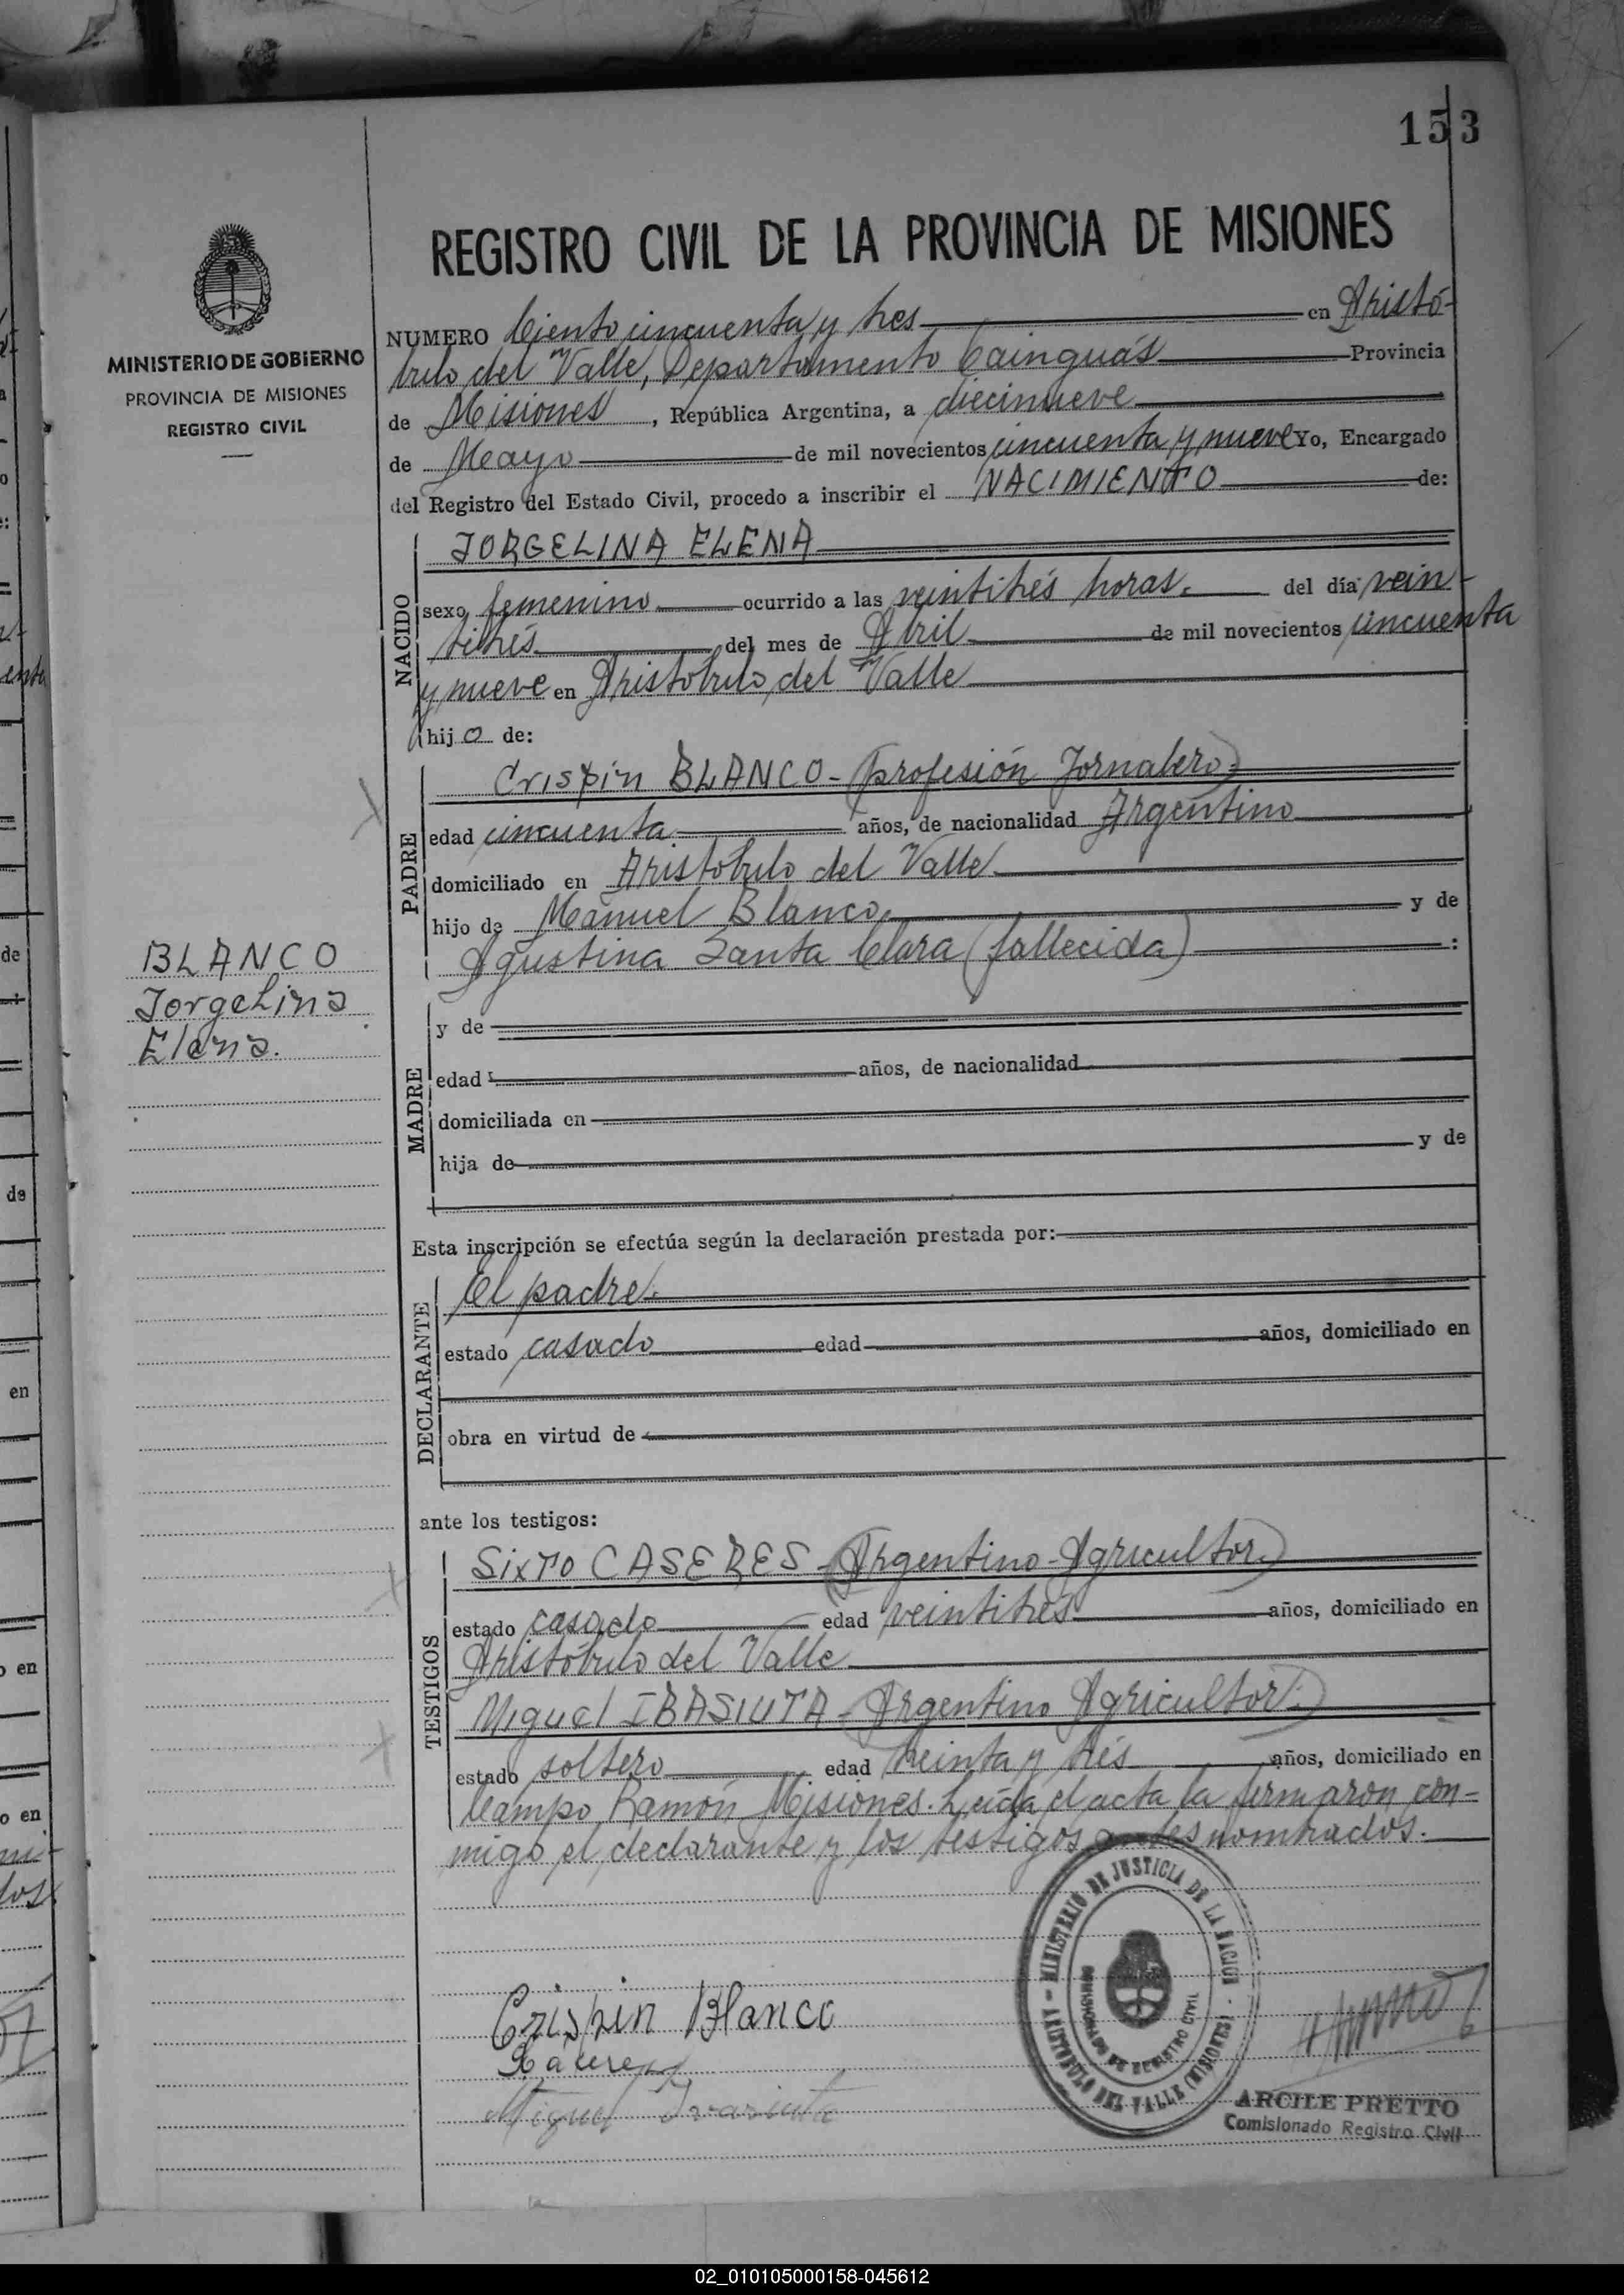 153
REGISTRO CIVIL DE LA PROVINCIA DE MISIONES
MINISTERIO DE GOBIERNO
PROVINCIA DE MISIONES
REGISTRO CIVIL
NUMERO Ciento cincuenta y tres en Aristó-
bulo del Valle, Departamento Cainguás Provincia
de Misiones, República Argentina, a diecinueve
de Mayo de mil novecientos cincuenta y nueve Yo, Encargado
del Registro del Estado Civil, procedo a inscribir el NACIMIENTO de:
NACIDO
JORGELINA ELENA
sexo femenino ocurrido a las veintitrés horas. del día vein-
titrés del mes de Abril de mil novecientos cincuenta
y nueve en Aristobulo del Valle
hijo de:
PADRE
Crispin BLANCO - (profesión Jornalero)
edad cincuenta años, de nacionalidad Argentino
domiciliado en Aristobulo del Valle
hijo de Manuel Blanco y de
Agustina Santa Clara (fallecida) :
BLANCO
Jorgelina
Elena.
MADRE
y de
edad años, de nacionalidad
domiciliada en
hija de y de
Esta inscripción se efectúa según la declaración prestada por:
DECLARANTE
El padre.
estado casado edad años, domiciliado en
obra en virtud de
ante los testigos:
TESTIGOS
Sixto CASERES - (Argentino - Agricultor.)
estado casado edad veintitrés años, domiciliado en
Aristóbulo del Valle
Miguel IBASIUTA - (Argentino Agricultor.)
estado soltero edad treinta y trés años, domiciliado en
Campo Ramón, Misiones. Leída el acta la firmaron con-
migo el declarante y los testigos antes nombrados.
MINISTERIO DE JUSTICIA DE LA NACION
ARISTOBULO DEL VALLE (MISIONES)
DE REGISTRO CIVIL
Crispin Blanco
Miguel
ARCILE PRETTO
Comisionado Registro Civil
de
de
en
en
en
02_010105000158-045612